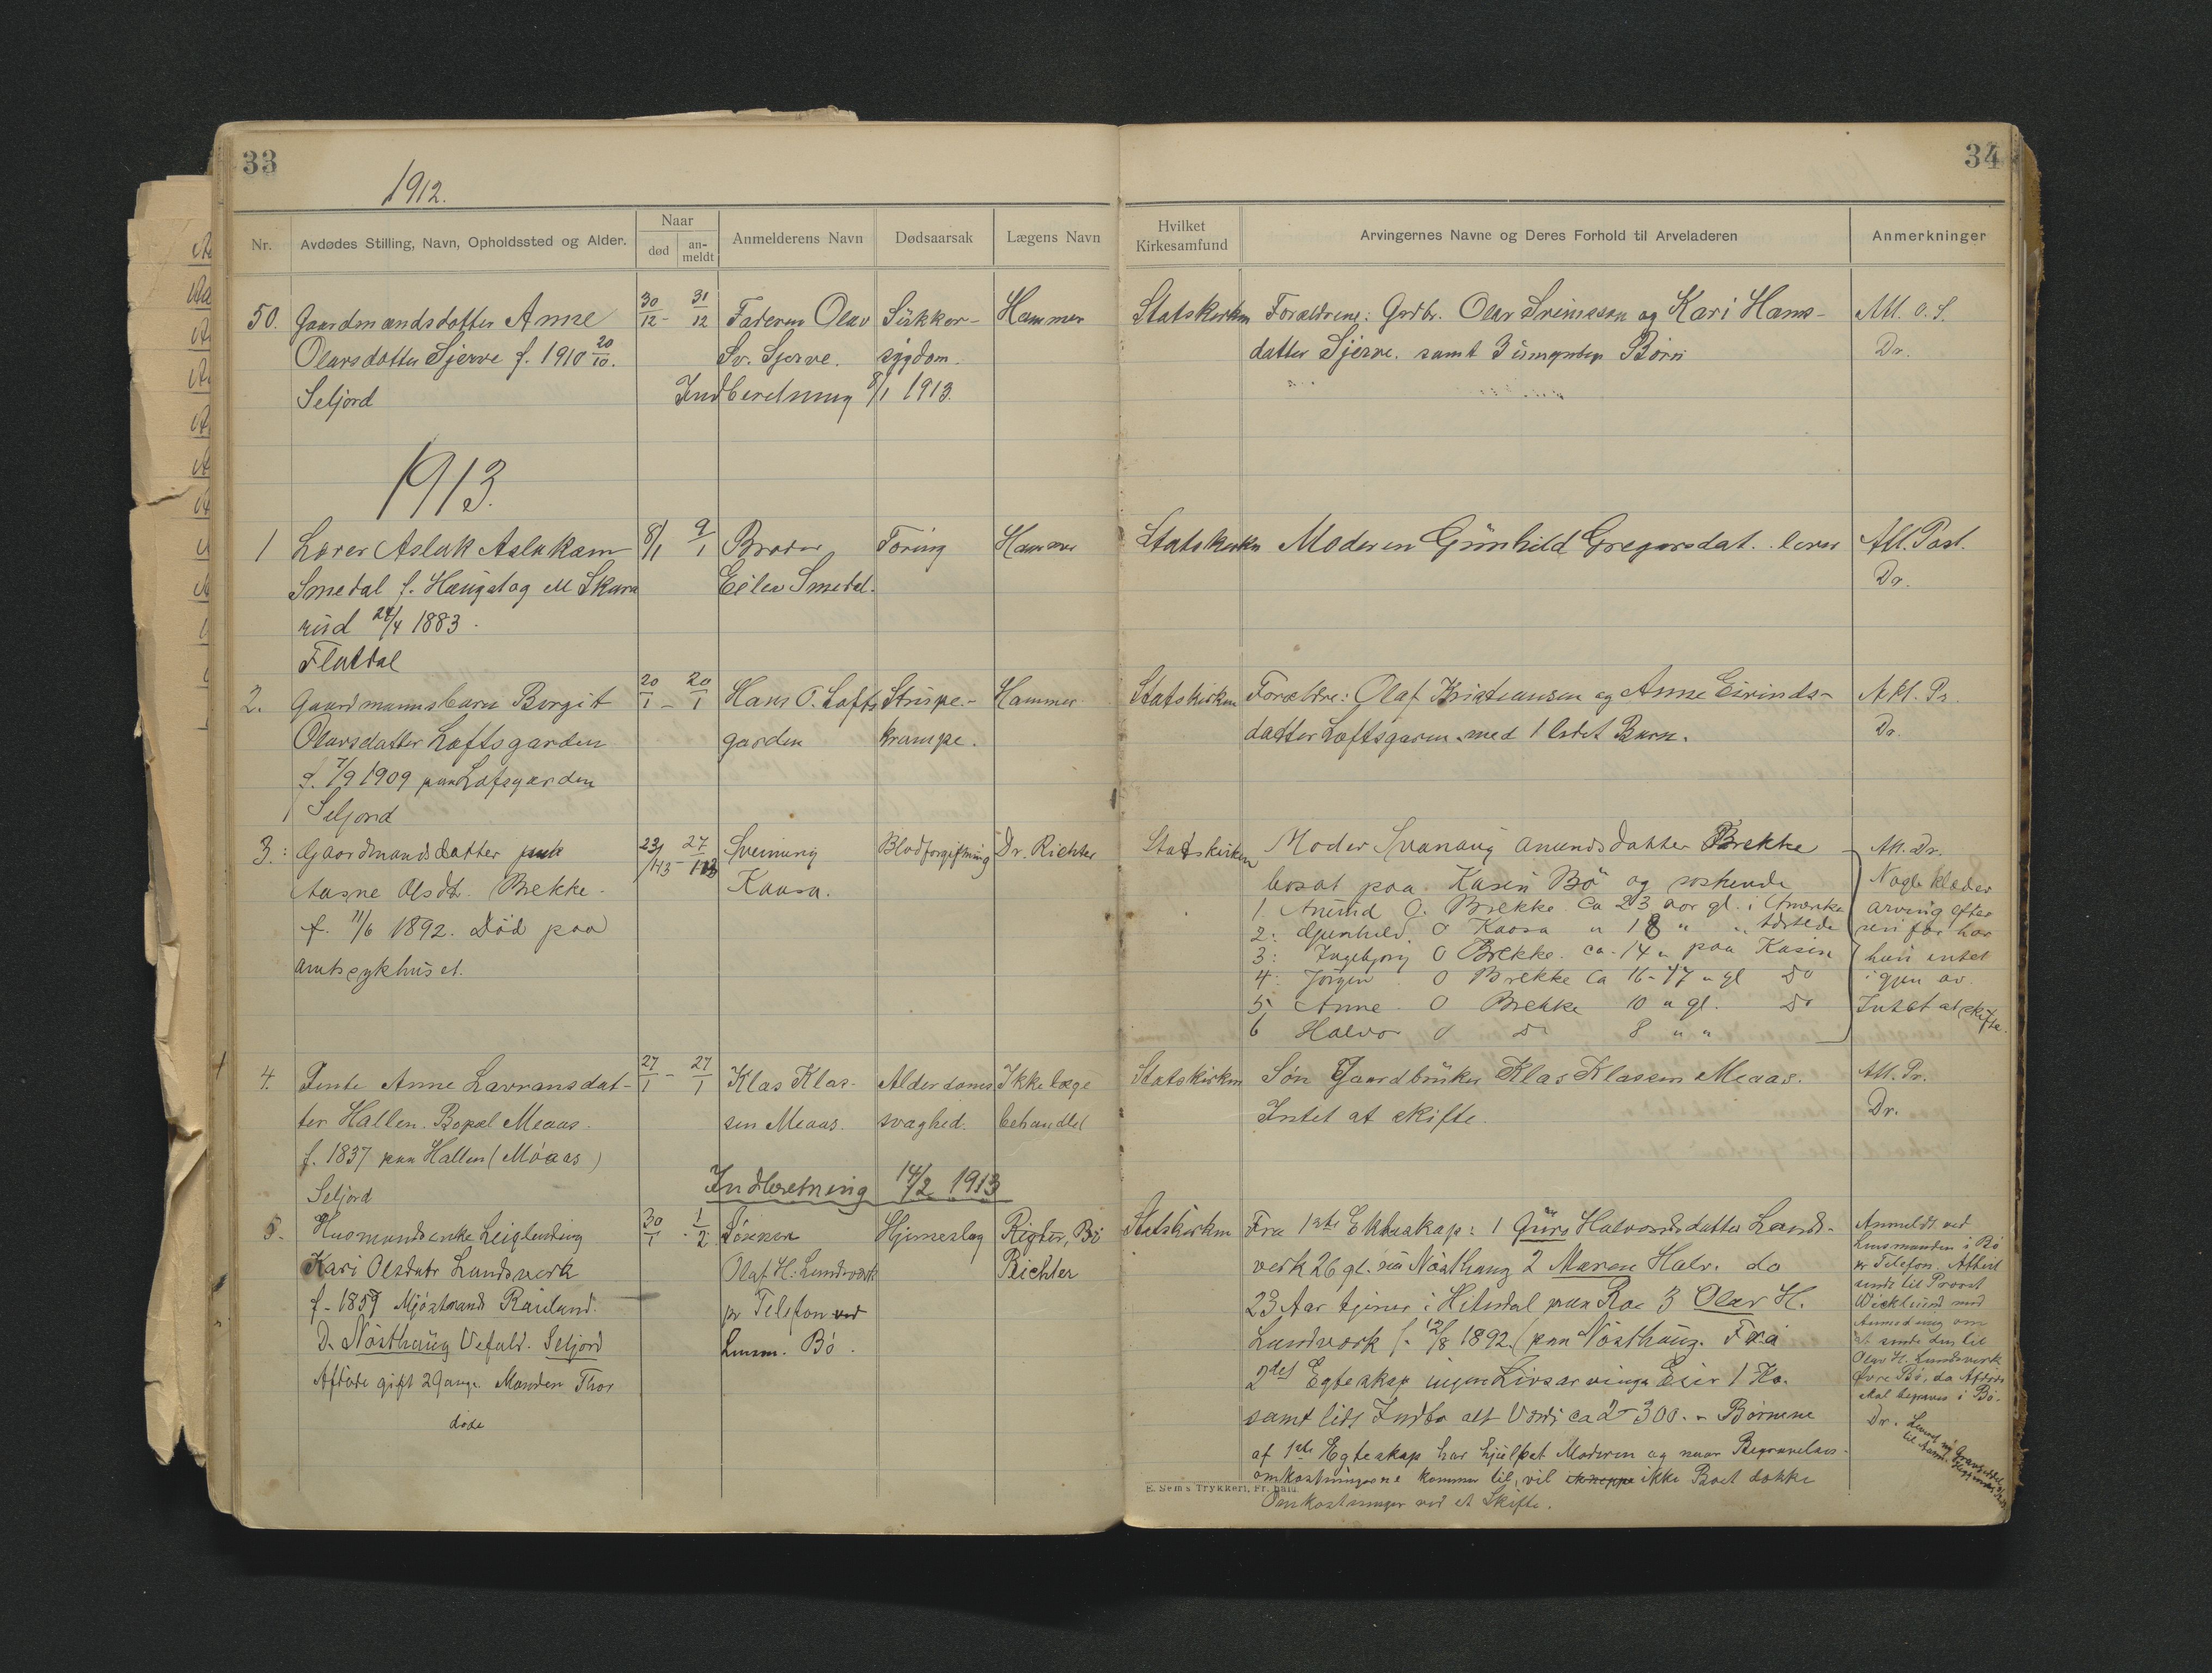 33
1912.
Nr.
Avdødes Stilling, Navn, Opholdssted og Alder.
Naar
død
an-
meldt
Anmelderens Navn
Dødsaarsak
Lægens Navn
50.
Gaardmandsdatter Anne
Olavsdatter Sjerve f. 1910 20/10.
Seljord
30/12 - 31/12
Faderen Olav
Sv. Sjerve.
Sükker-
sygdom.
Hammer
Indberetning 8/1 1913.
1913.
1
Lærer Aslak Aslakson
Smedal f. Haugstog
rüd 24/4 1883.
Flatdal
8/1 9/1
Broder
Eilev Smedal.
Tæring
Hammer
2.
Gaardmannsbarn Borgit
Olavsdatter Loftsgarden
f. 7/9 1909 paa Loftsgarden
Seljord
20/1 - 20/1
Hans O. Lofts
garden
Strüpe-
krampe.
Hammer
3.
Gaardmandsdatter
Aasne Olsdt. Brekke.
f. 11/6 1892. Død paa
amtssykhuset.
Sveinung
Kaasa.
Blodforgiftning
Dr. Richter
4.
Jente Anne Lavransdat-
ter Hallen. Bopæl Meaas.
f. 1837 paa Hallen (Möaas)
Seljord
27/1 - 27/1
Klas Klas-
sen Meaas.
Alderdoms
svaghed.
Ikke læge
behandlet
Indberetning 14/2 1913
5.
Husmandsenke Leiglending
Kari Olsdatr Landsverk
f. 1857 Mjöstrand Rauland.
D. Nösthaug Uefald. Seljord
Afdøde gift 2 gange. Manden Thor
døde
30/1 - 1/2
Sønnen
Olaf H. Lundsverk
pr Telefon ved
Lensm. Bö.
Hjerneslag
Rigter, Bö
Richter
34
Hvilket
Kirkesamfund
Arvingernes Navne og Deres Forhold til Arveladeren
Anmerkninger
Statskirken
Forældrene: Grdbr. Olav Sveinsson og Kari Hans-
datter Sjerve. samt 3 umyndige Börn
Att. O. S.
Dr.
Statskirken
Moderen Günhild Gregarsdat. lever
Att. Post.
Dr.
Statskirken
Forældre: Olaf Kristiansen og Anne Eivinds-
datter Loftsgaren. med 1 Barn.
Att. Pr.
Dr.
Statskirken
Moder Svanaug Anundsdatter Brekke
bosat paa Kasin Bö og søskende
1. Anund O. Brekke ca 23 aar gl. i Amerika
2: Gunhild. O Kaasa " 18 " "
3: Ingebjorg O Brekke. ca. 14 " paa Kasin
4: Jørgen O Brekke ca 16-17 " gl do
5. Anne O Brekke 10 " gl. do
6 Halvor O do 8 " "
Att. Dr.
Nogle klæder
arving efter
sin far har
hun intet
igjen av.
Intet at skifte.
Statskirken
Søn Gaardbrüker Klas Klasen Meaas.
Intet at skifte.
Att. Pr.
Dr.
Statskirken
Fra 1ste Ekteskap: 1 Guro Halvorsdatter Lands-
verk 26 gl. Nösthaug 2 Maren Halv. do
23 Aar tjener i Hitterdal paa Roe 3 Olav H.
Lundverk f. 12/8 1892 paa Nösthaug. Fra
2det Egteskap ingen Livsarvinge Eier 1 Ko.
samt lidt Indbo alt Værdi ca 2-300.- Börnene
af 1ste Egteskap har hjulpet Moderen og naar Begravelses-
omkostningerne kommer til, vil ikke Boet dække
Omkostninger ved et Skifte.
Anmeldt ved
Lensmanden i Bö
pr Telefon. Attest
sendt til Provst
Wicklund med
Anmodning om
at sende den til
Olav H. Lundsverk
Øvre Bö, da Afdøde
skal begraves i Bö.
Dr.
E. Sems Trykkeri, Fr. hald.